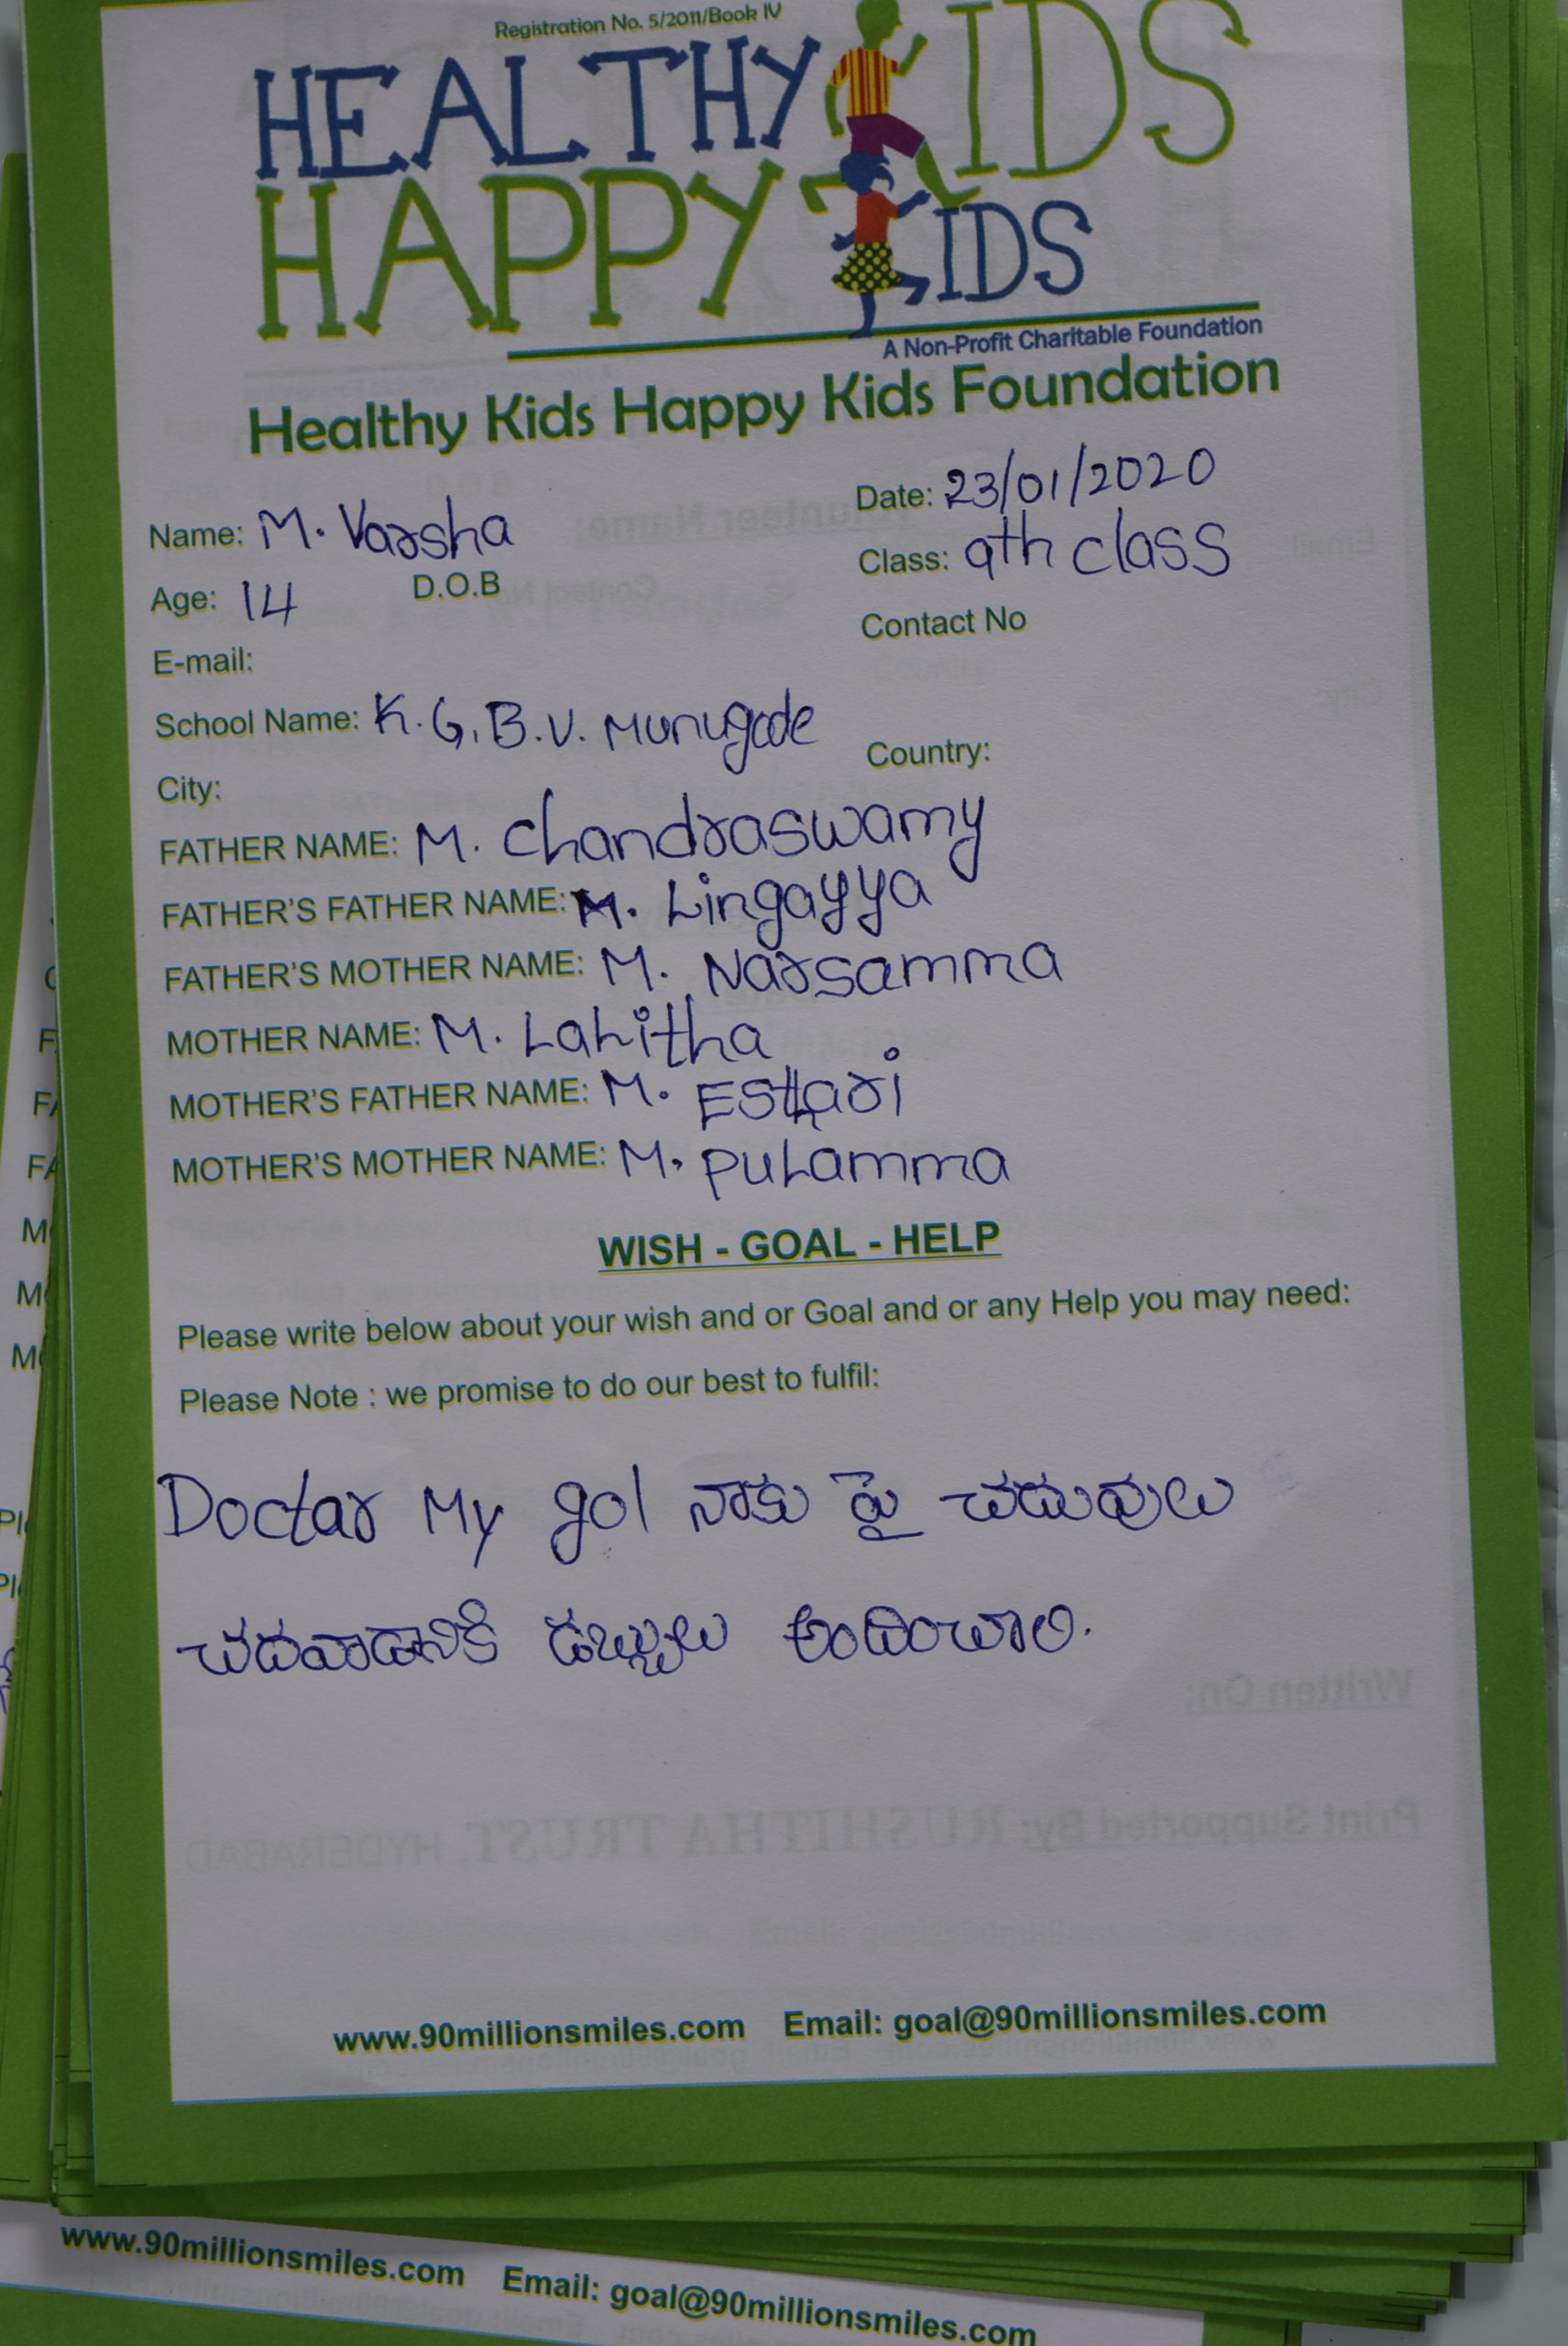 Registration No. 5/2011/Book IV
HEALTHY KIDS
HAPPY KIDS
A Non-Profit Charitable Foundation
Healthy Kids Happy Kids Foundation
Date: 23/01/2020
Name: M. Varsha
Class: 9th class
Age: 14 D.O.B
Contact No
E-mail:
School Name: K.G.B.V. Munugode
Country:
City:
FATHER NAME: M. Chandraswamy
FATHER'S FATHER NAME: M. Lingayya
FATHER'S MOTHER NAME: M. Narsamma
MOTHER NAME: M. Lalitha
MOTHER'S FATHER NAME: M. Estari
MOTHER'S MOTHER NAME: M. pulamma
WISH - GOAL - HELP
Please write below about your wish and or Goal and or any Help you may need:
Please Note : we promise to do our best to fulfil:
Doctar My gol నాకు పై చదువులు
చదవాడానికి డబ్బులు అందించాలి.
www.90millionsmiles.com Email: goal@90millionsmiles.com
www.90millionsmiles.com Email: goal@90millionsmiles.com